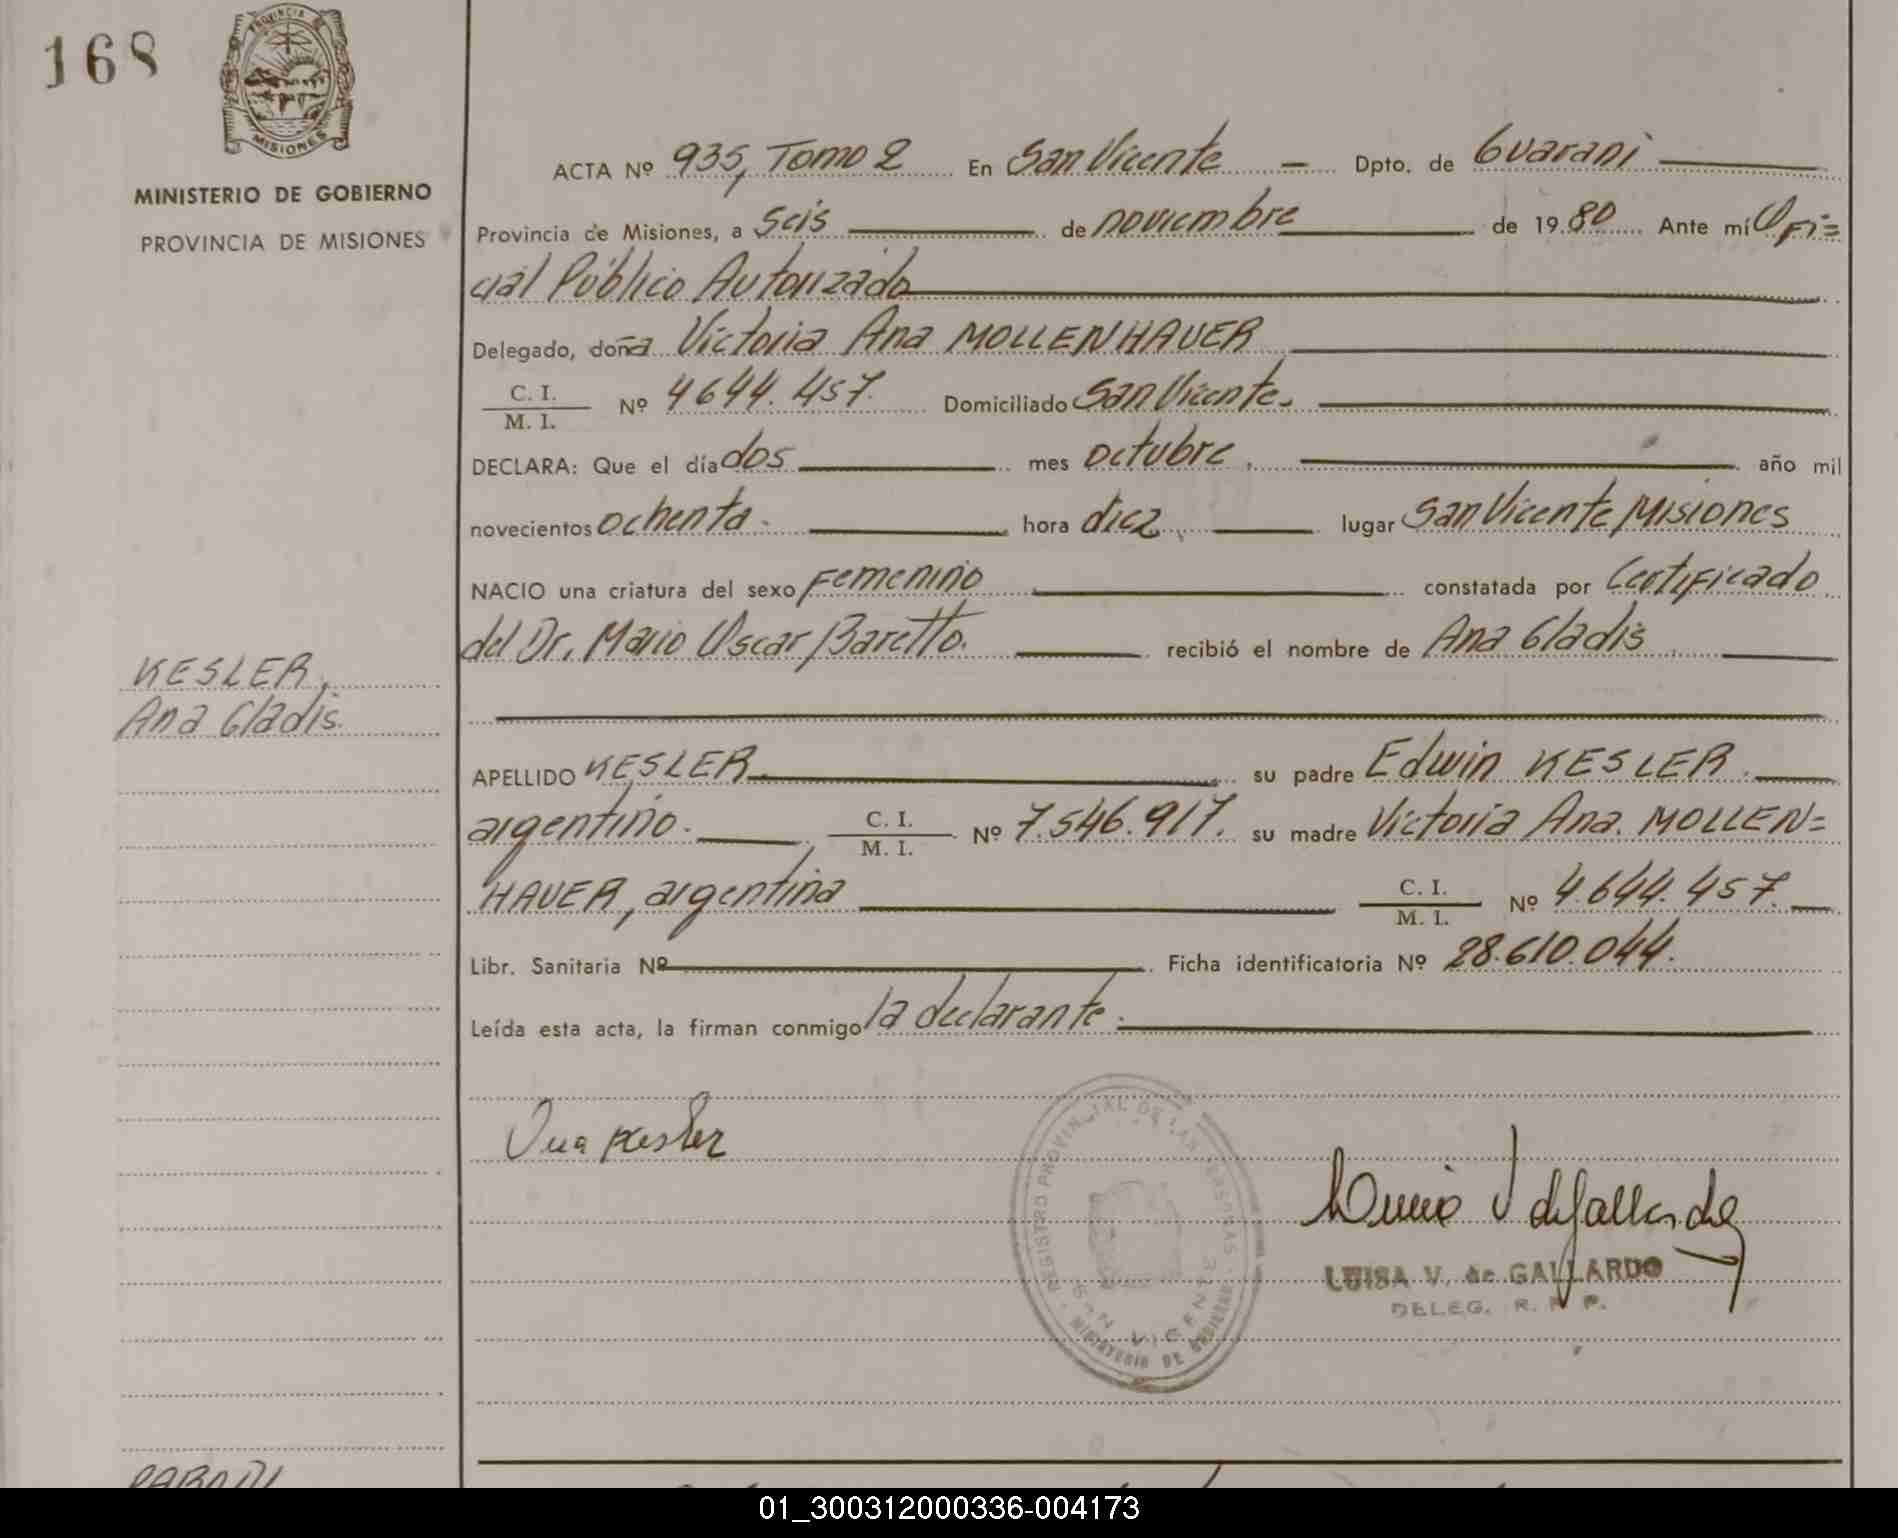 168
PROVINCIA DE
MISIONES
MINISTERIO DE GOBIERNO
PROVINCIA DE MISIONES
KESLER,
Ana Gladis.
ACTA Nº 935, Tomo 2 En San Vicente — Dpto. de Guaraní
Provincia de Misiones, a Seis de noviembre de 1980 Ante mí Ofi=
cial Público Autorizado
Delegado, doña Victoria Ana MOLLENHAUER
C. I.
M. I. Nº 4644.457. Domiciliado San Vicente.
DECLARA: Que el día dos mes octubre, año mil
novecientos ochenta. hora diez, lugar San Vicente Misiones
NACIO una criatura del sexo Femenino constatada por Certificado
del Dr. Mario Oscar Baretto. recibió el nombre de Ana Gladis
APELLIDO KESLER. su padre Edwin KESLER.
argentino. C. I.
M. I. Nº 7.546.917. su madre Victoria Ana. MOLLEN=
HAUER, argentina C. I.
M. I. Nº 4.644.457.
Libr. Sanitaria Nº Ficha identificatoria Nº 28.610.044.
Leída esta acta, la firman conmigo la declarante.
Ana Kesler
REGISTRO PROVINCIAL DE LAS PERSONAS
SAN VICENTE
MINISTERIO DE GOBIERNO
LUISA V. de GALLARDO
DELEG. R. P. P.
01_300312000336-004173